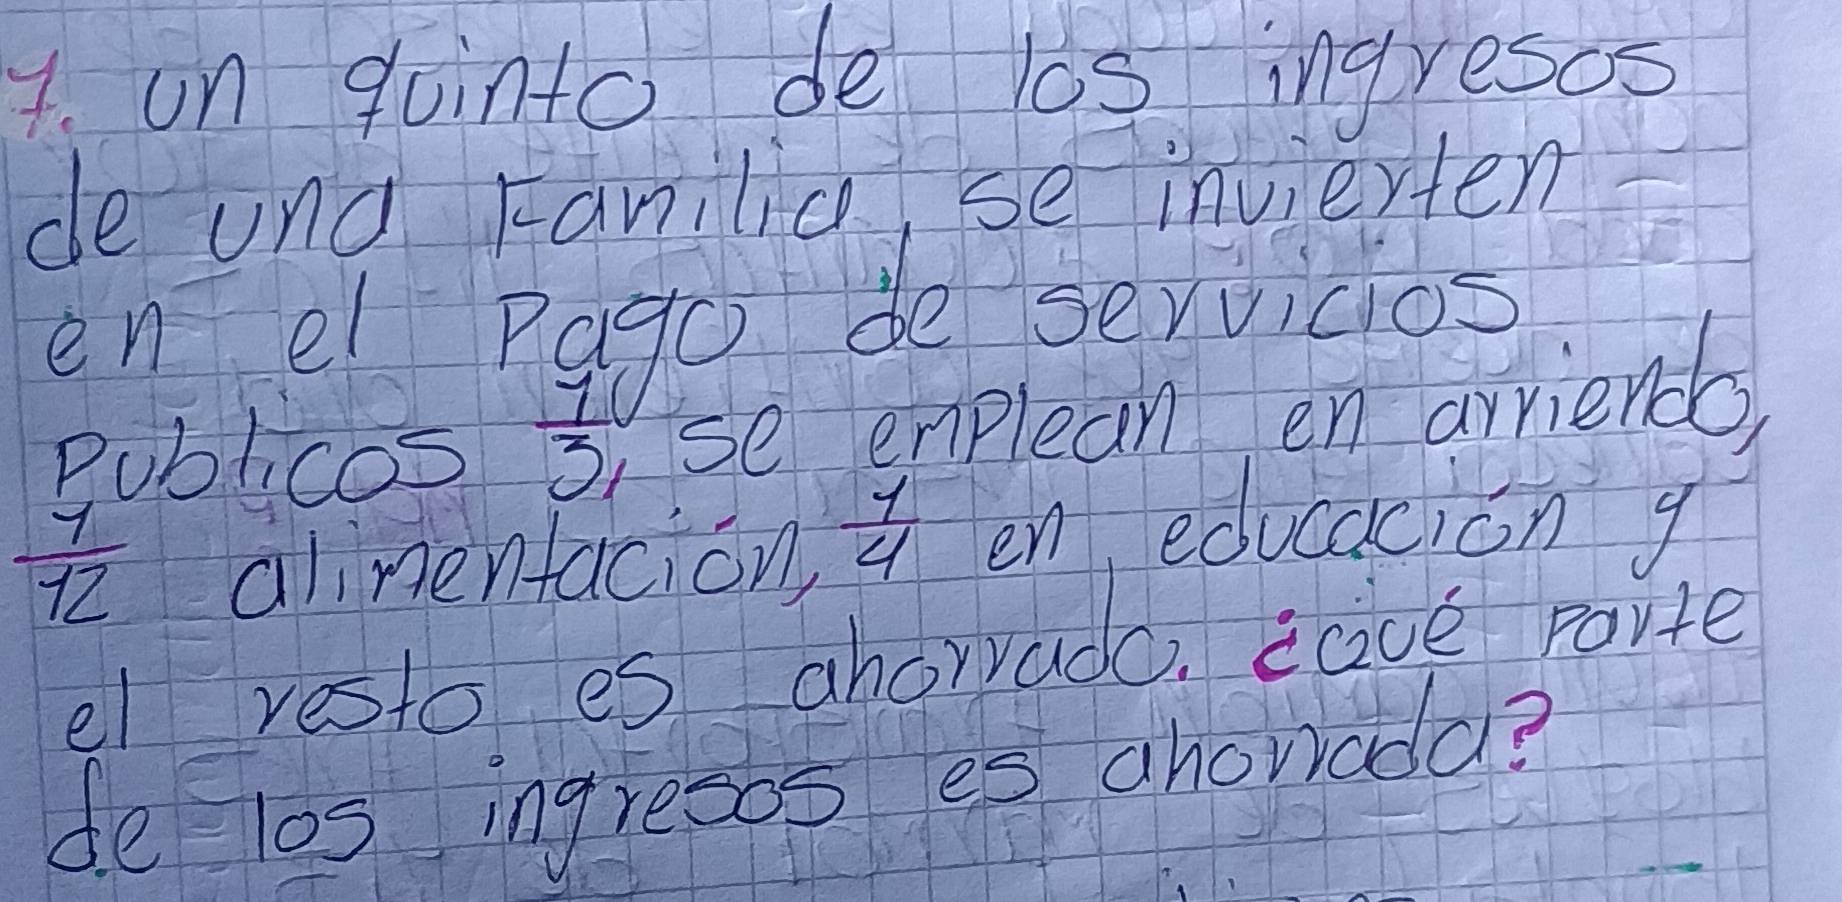 1. un quinto de los ingresos
de una Familia, se invierten
en el Pago de servicios
Publicos 1/3, se emplean en arriendo,
1/12 alimentación, 1/4 en educación y
el resto es ahorrado. ¿Qué parte
de los ingresos es ahorrada?